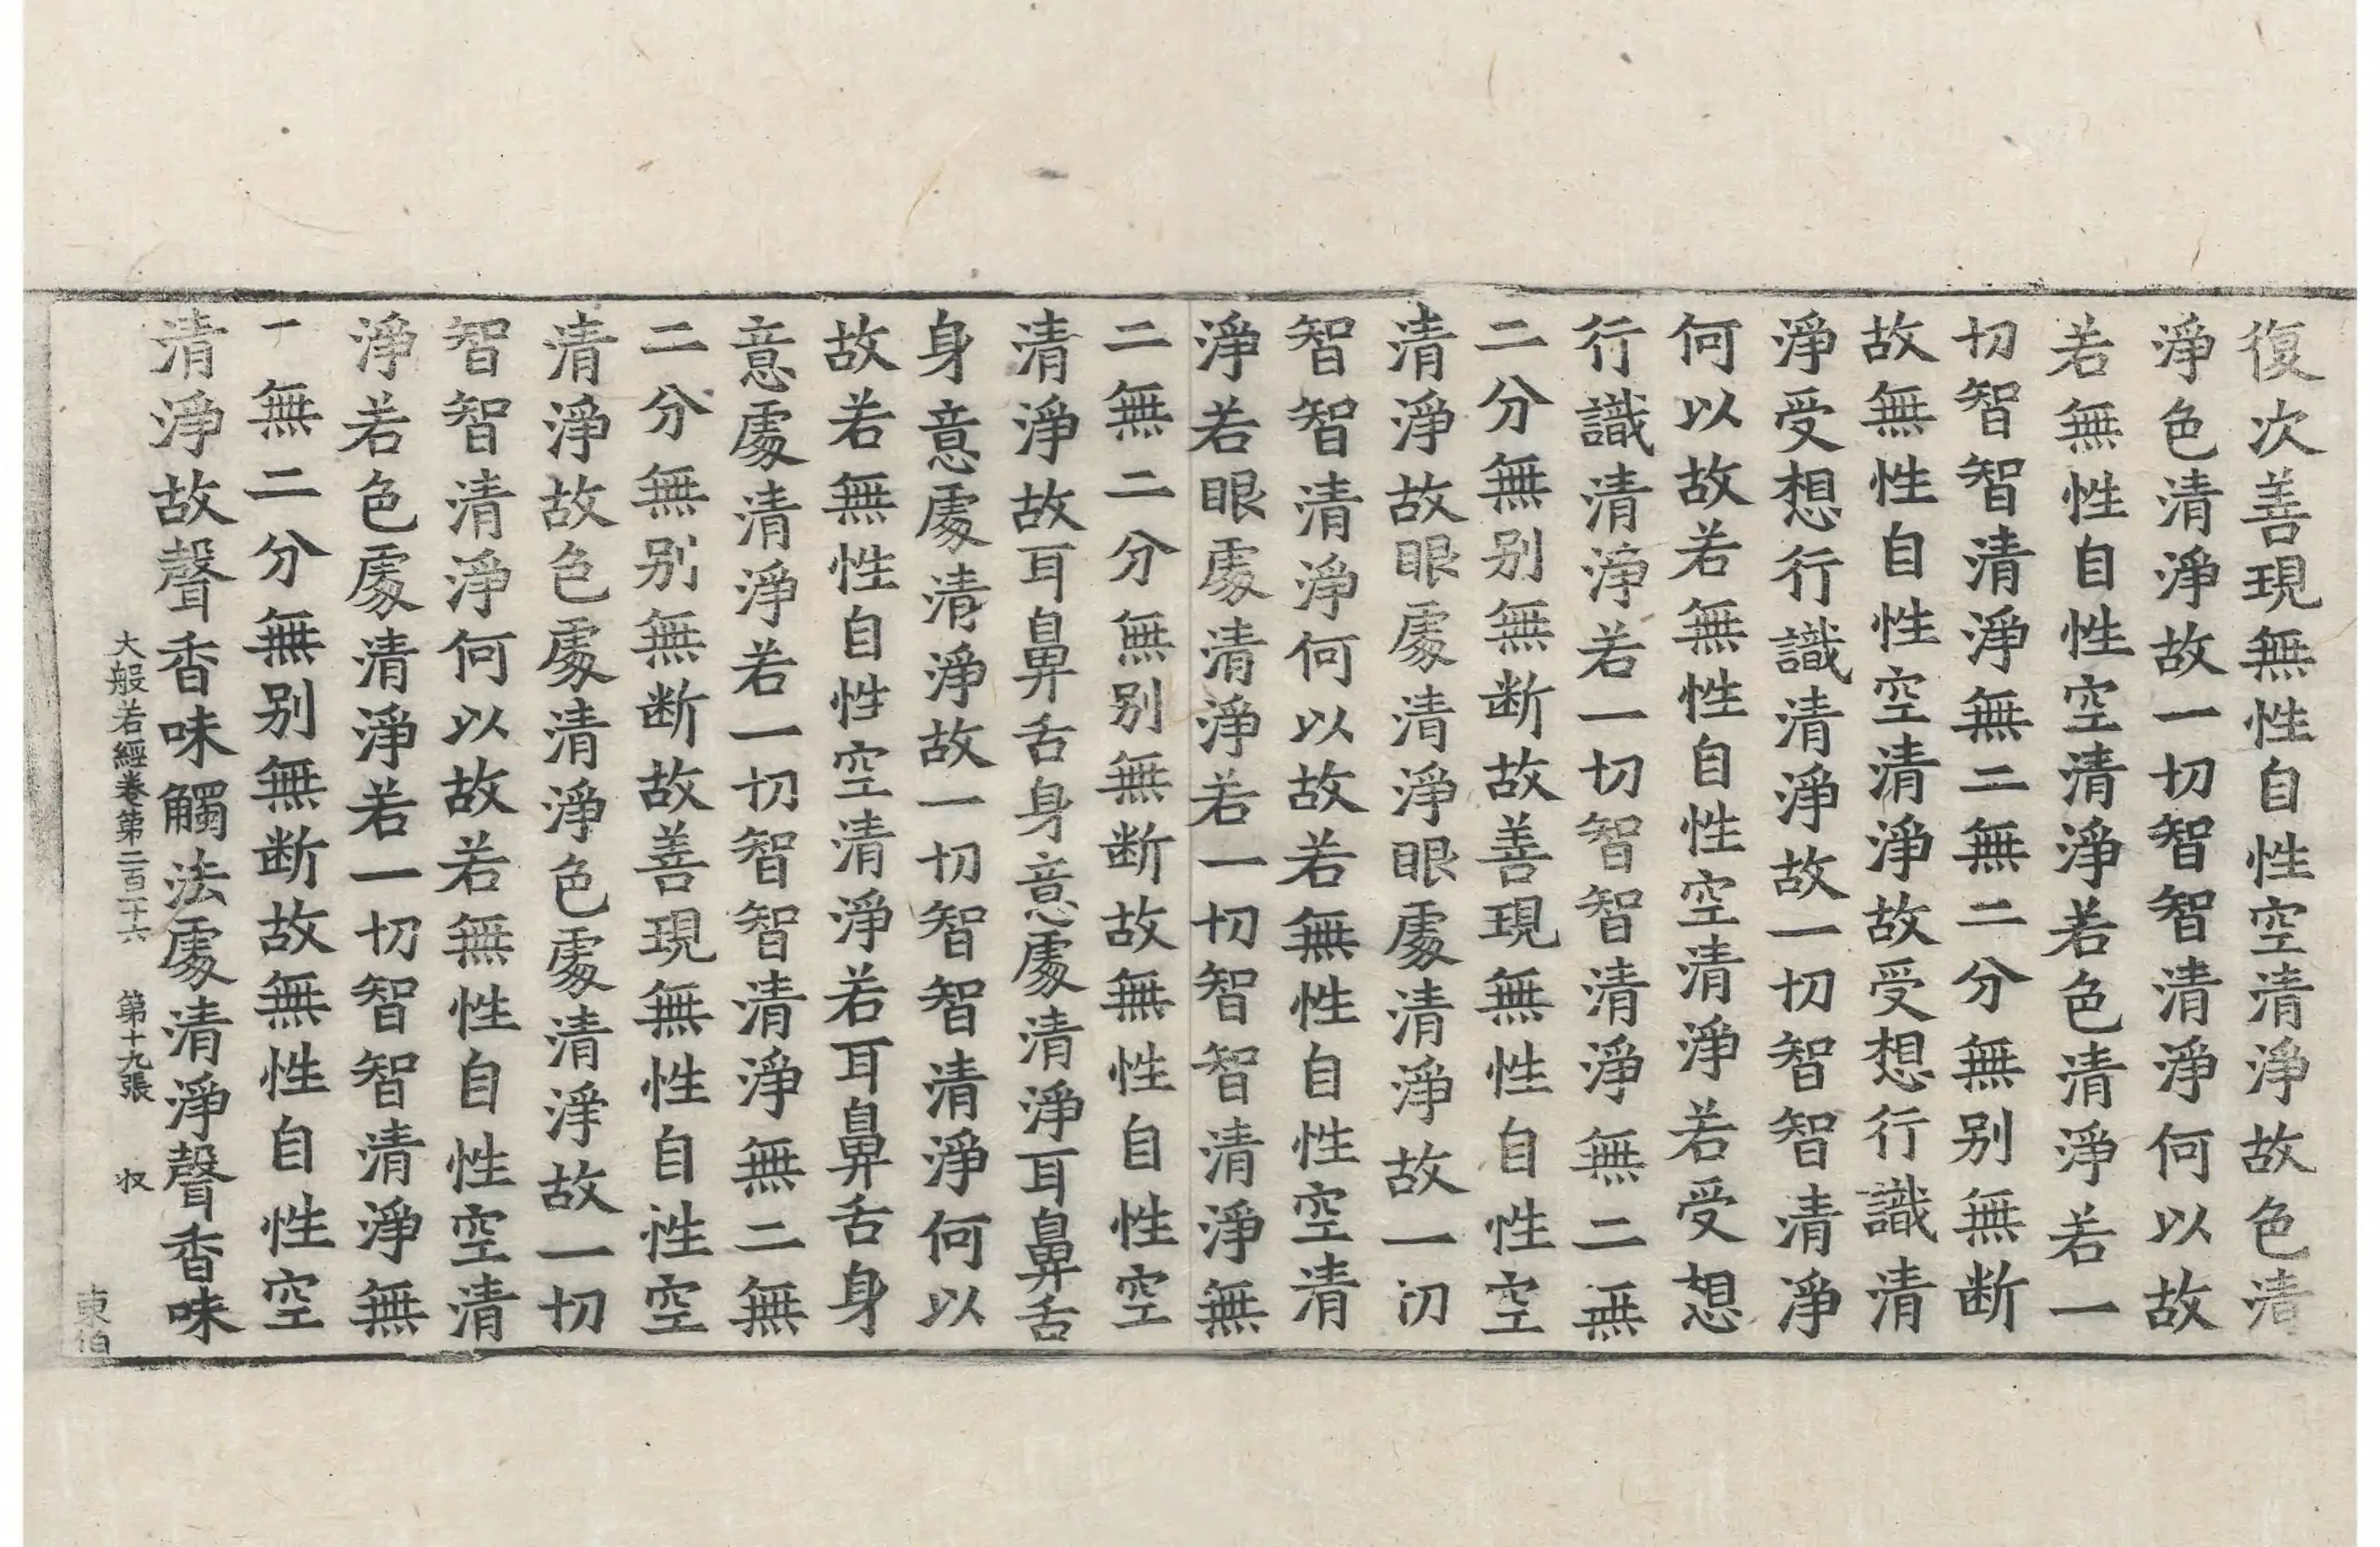 復次善現無性自性空清淨故色清
淨色清淨故一切智智清淨何以故
若無性自性空清淨若色清淨若一
切智智清淨無二無二分無别無断
故無性自性空清淨故受想行識清
淨受想行識清淨故一切智智清淨
何以故若無性自性空清淨若受想
行識清淨若一切智智清淨無二無
二分無别無断故善現無性自性空
清淨故眼處清淨眼處清淨故一切
智智清淨何以故若無性自性空清
淨若眼處清淨若一切智智清淨無
二無二分無别無断故無性自性空
清淨故耳鼻舌身意處清淨耳鼻舌
身意處清淨故一切智智清淨何以
故若無性自性空清淨若耳鼻舌身
意處清淨若一切智智清淨無二無
二分無别無断故善現無性自性空
清淨故色處清淨色處清淨故一切
智智清淨何以故若無性自性空清
淨若色處清淨若一切智智清淨無
無二分無别無断故無性自性空
清淨故聲香味觸法處清淨聲香味
大般若經卷第二百一十六 第十九張 收
東伯